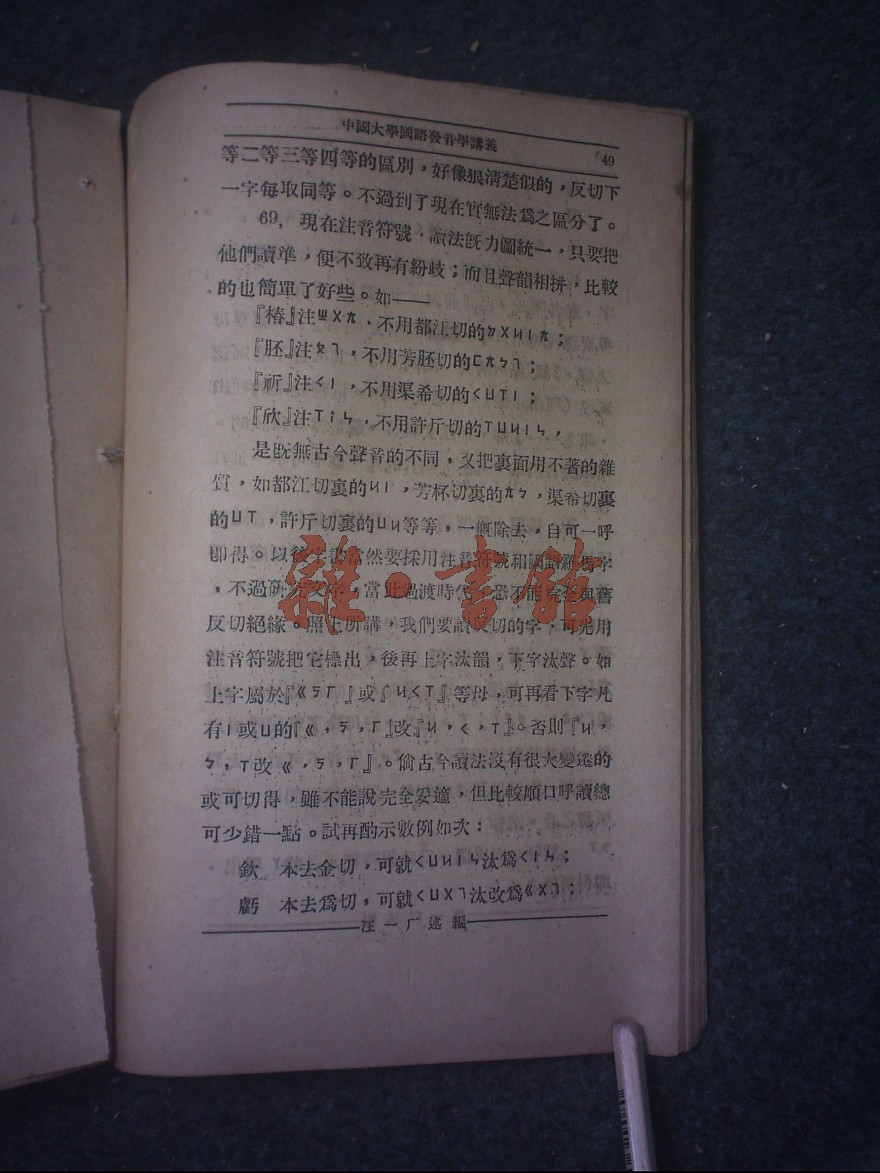 中國大學國語發音學講義
49
等二等三等四等的區別，好像狠清楚似的，反切下
一字每取同等。不過到了現在實無法爲之區分了。
69，現在注音符號，讀法旣力圖統一，只要把
他們讀準，便不致再有紛歧；而且聲韻相拼，比較
的也簡單了好些。如——
『樁』注ㄓㄨㄤ、不用都江切的ㄉㄨㄐㄧㄤ；
『胚』注ㄆㄟ，不用芳胚切的ㄈㄤㄅㄟ；
『祈』注ㄑㄧ，不用渠希切的ㄑㄩㄒㄧ；
『欣』注ㄒㄧㄣ，不用許斤切的ㄒㄩㄐㄧㄣ，
是旣無古今聲音的不同，又把裏面用不著的雜
質，如都江切裏的ㄐㄧ，芳杯切裏的ㄤㄅ，渠希切裏
的ㄩㄒ，許斤切裏的ㄩㄐ等等，一概除去，自可一呼
卽得。以後字 當然要採用注音符號和國語羅馬字
，不過研究文字，當此過渡時代，恐不能完全與舊
反切絕緣。照上所講，我們要讀反切的字，可先用
注音符號把它標出，後再上字汰韻，下字汰聲。如
上字屬於『ㄍㄎㄏ』或『ㄐㄑㄒ』等母，可再看下字凡
有ㄧ或ㄩ的『ㄍ，ㄎ，ㄏ』改『ㄐ，ㄑ，ㄒ』。否則『ㄐ，
ㄑ，ㄒ改ㄍ，ㄎ，ㄏ』。倘古今讀法沒有很大變遷的
或可切得，雖不能說完全妥適，但比較順口呼讀總
可少錯一點。試再酌示數例如次：
欽　本去金切，可就ㄑㄩㄐㄧㄣ汰爲ㄑㄧㄣ；
虧　本去爲切，可就ㄑㄩㄨㄟ汰改爲ㄎㄨㄟ；
汪一厂述編
雜·書館